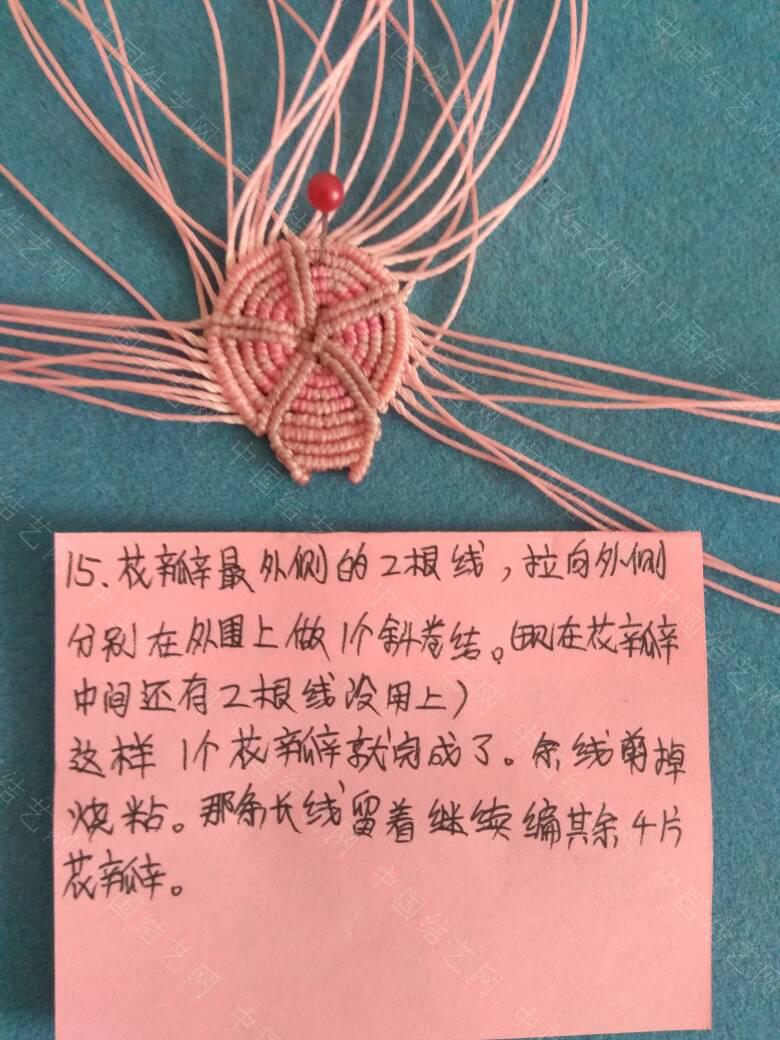 15、花瓣最外侧的2根线，拉向外侧
分别在外围上做1个斜卷结。(现在花瓣
中间还有2根线没用上）
这样1个花瓣就完成了。余线剪掉
烧粘。那条长线留着继续编其余4片
花瓣。
中国结艺网